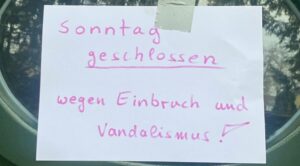 Sonntag
geschlossen
wegen Einbruch und
Vandalismus!